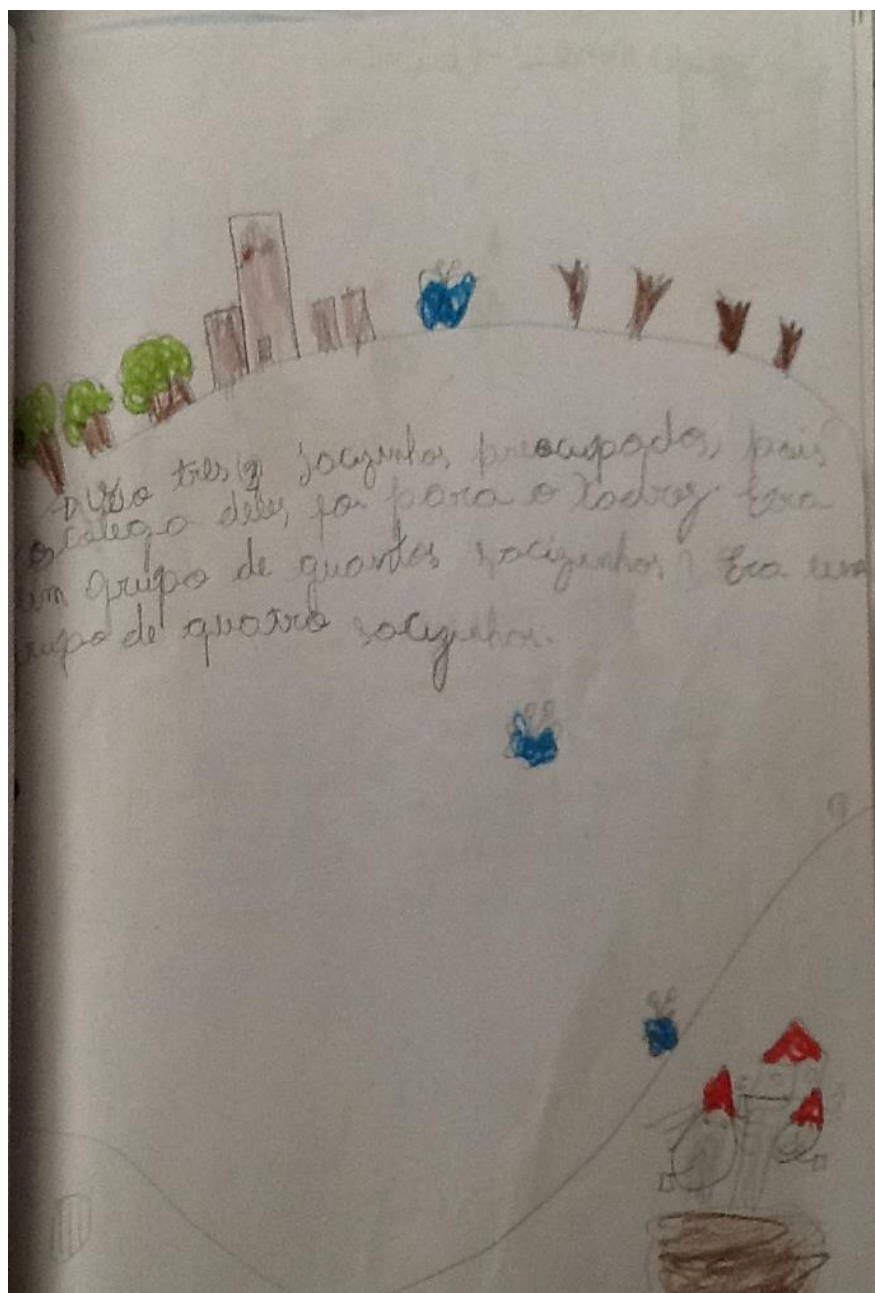 três (3) sacizinhos preocupados, pois
o colega deles foi para o xadrez Era
um grupo de quantos sacizinhos? Era um
grupo de quatro sacizinhos.